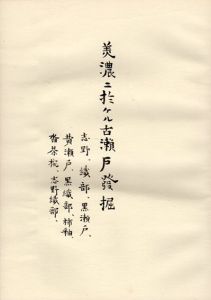 美濃ニ於ケル古瀬戸發掘
志野、織部、黒瀬戸、
黄瀬戸、黒織部、柿釉、
沓茶垸、志野織部、